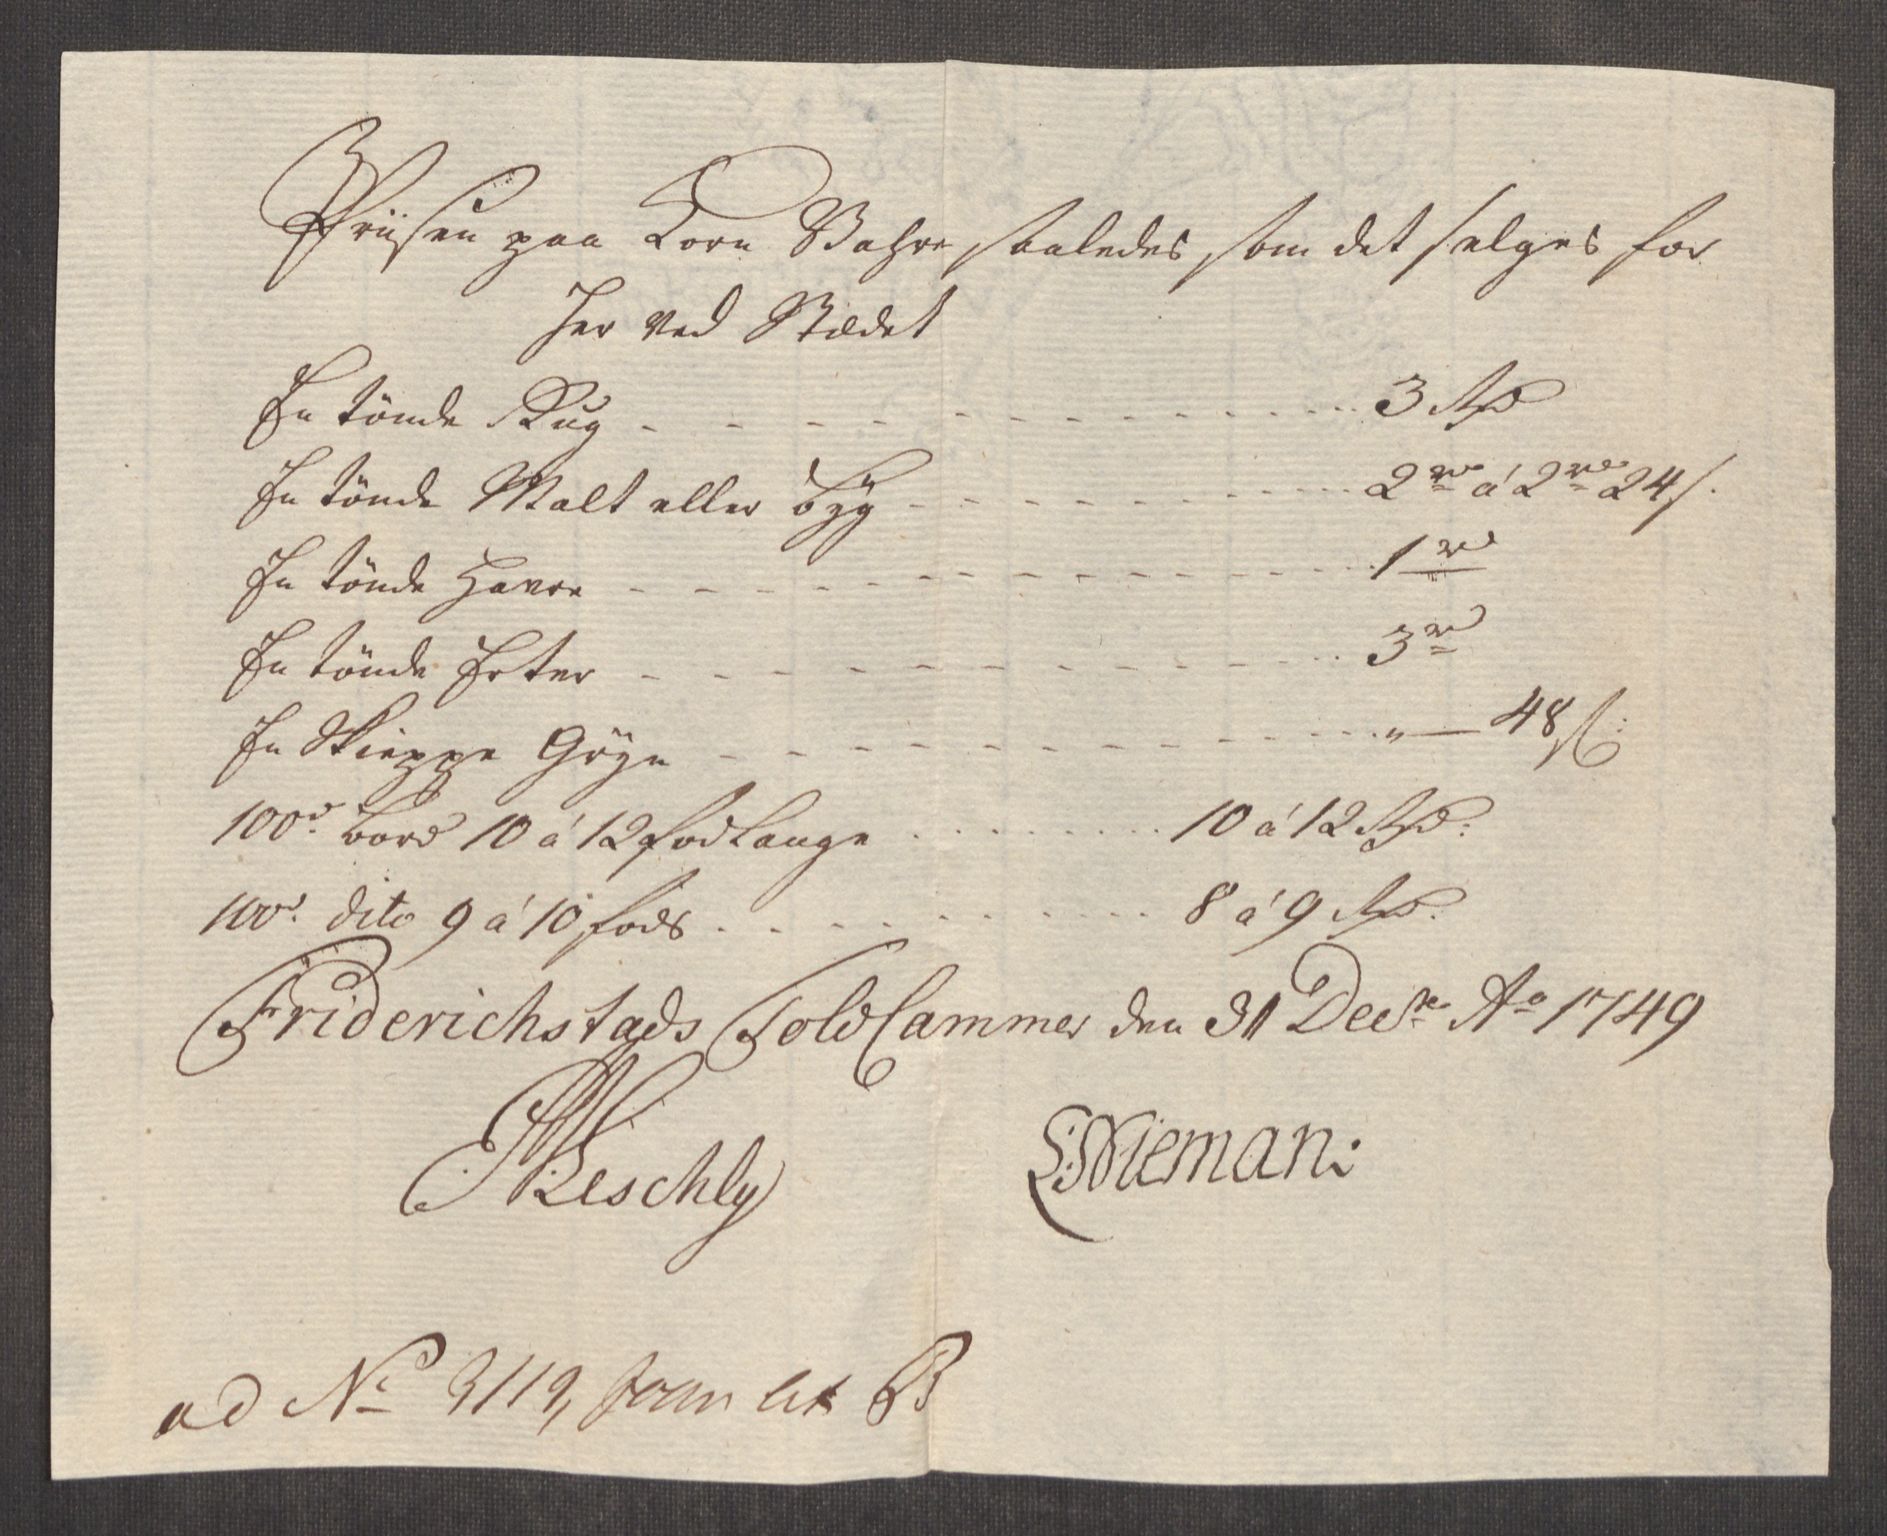 Priisen paa Korn Vahre saaledes som det selges for
her ved Stædet
En tönde Rug - - - - 3 Rd
En tönde Malt eller byg - - - - 2 rd á 2 rd 24 s.
En tönde Havre - - - - 1 rd
En tönde Erter - - - - 3 rd
En Skieppe Gryn - - - - " — 48 s:
100d. bord 10 á 12 fod Lange . . . . 10 á 12 Rd:
100d. dito 9 á 10 fods . . . . 8 á 9 Rd.
Friderichstads Told Cammer den 31 Decbr Ao 1749
Reschly
Wieman:
ad No 3119, Lit B